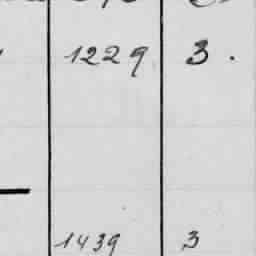 1229 3.
1439 3